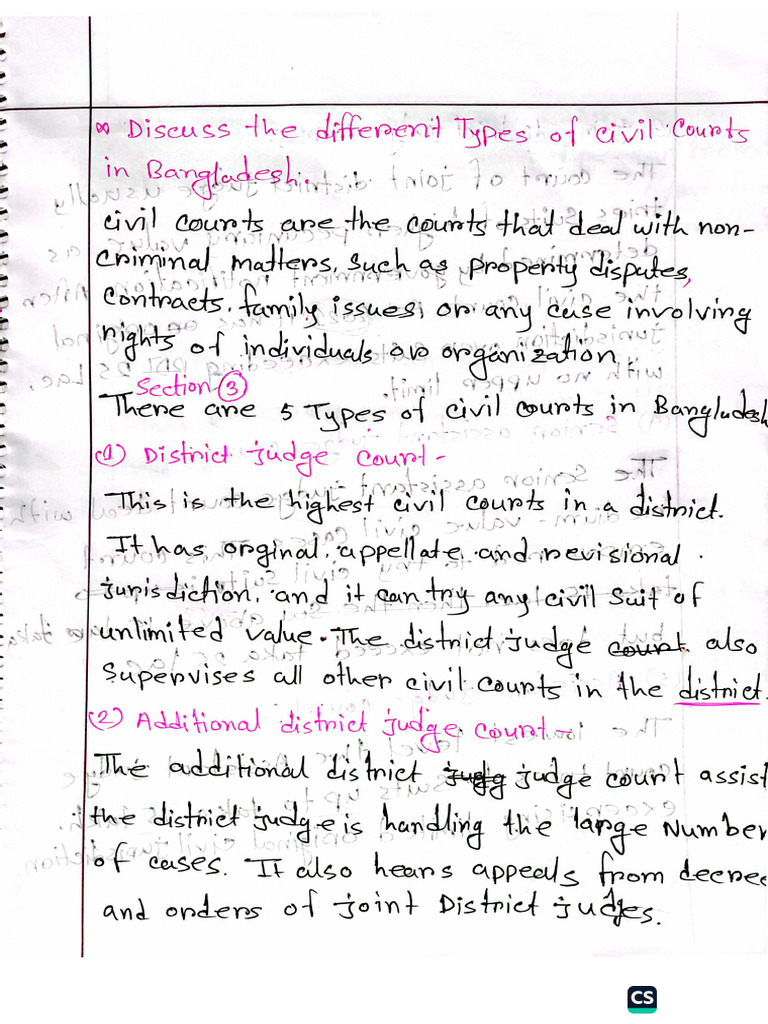 ∞ Discuss the different Types of civil Courts
in Bangladesh.
civil courts are the courts that deal with non-
criminal matters, such as property disputes,
contracts, family issues, or any case involving
rights of individuals or organization.
Section ③
There are 5 Types of civil courts in Bangladesh
(1) District judge court -
This is the highest civil courts in a district.
It has orginal, appellate and revisional
jurisdiction, and it can try any civil suit of
unlimited value. The district judge court also
supervises all other civil courts in the district.
(2) Additional district judge court -
The additional district judg judge court assist
the district judge is handling the large Number
of cases. It also hears appeals from decree
and orders of joint District judges.
CS